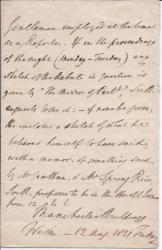 Gentleman employed at the
as a Reporter. If in the proceedings
of the night (Monday - Tuesday) any
sketch of the Debate in question is
given by "The Mirror of Parlt" Scott
requests to see it: - if none be given,
he encloses a sketch of what he
believes himself to have said,
with a memor. of something said
by Mr. & Mr Spring Rice
Scott proposes to be in the H of Com
from 12 to 6.
Manchester Buildings
Westr. - 12 Aug. 1831 Friday